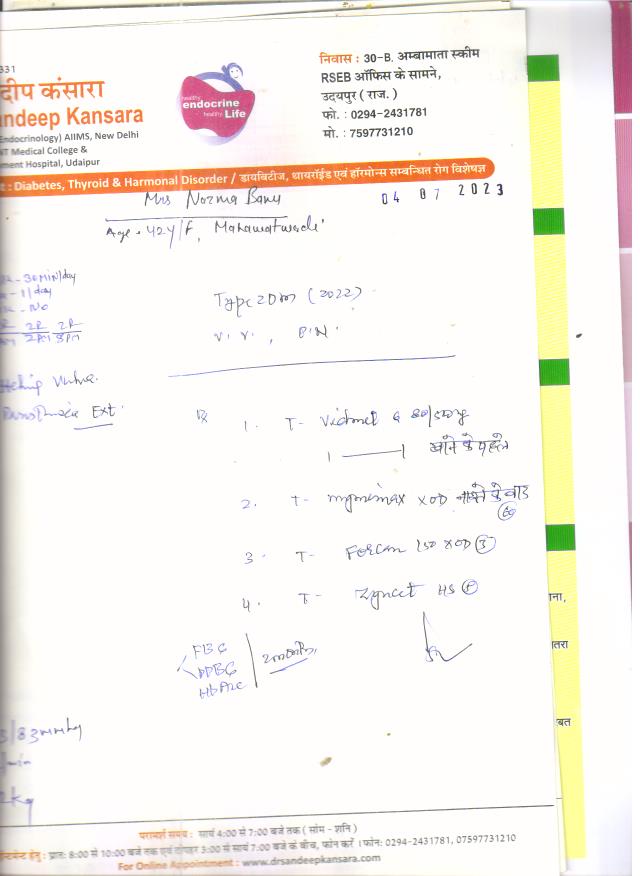 331
दीप कंसारा
ndeep Kansara
Endocrinology) AIIMS, New Delhi
NT Medical College &
ment Hospital, Udaipur
healthy
endocrine
healthy Life
निवास : 30-B. अम्बामाता स्कीम
RSEB ऑफिस के सामने,
उदयपुर ( राज.)
फो. : 0294-2431781
मो. : 7597731210
t : Diabetes, Thyroid & Harmonal Disorder / डायबिटीज, थायरॉईड एवं हॉरमोन्स सम्बन्धित रोग विशेषज्ञ
Mrs Nozma Banu
04 07 2023
Age - 42y/F,
30 Min/day
- 1/day
- No
2R 2R
2PM 8PM
Type 2 Dm (2022)
Itching Vulva
Ext
Rx
1. T-
1 1 खाने के पहले
2. T- XOD नाश्ते के बाद
60
3. T- Forcan 150 XOD 3
4. T- Zyncet HS
FBG
PPBG
HbA1c
2 months
/83 mmHg
/min
2kg
ना,
तरा
बत
परामर्श समय : सायं 4:00 से 7:00 बजे तक ( सोम - शनि )
न्टमेन्ट हेतु : प्रात: 8:00 से 10:00 बजे तक एवं दोपहर 3:00 से सायं 7:00 बजे के बीच, फोन करें । फोन: 0294-2431781, 07597731210
For Online Appointment : www.drsandeepkansara.com